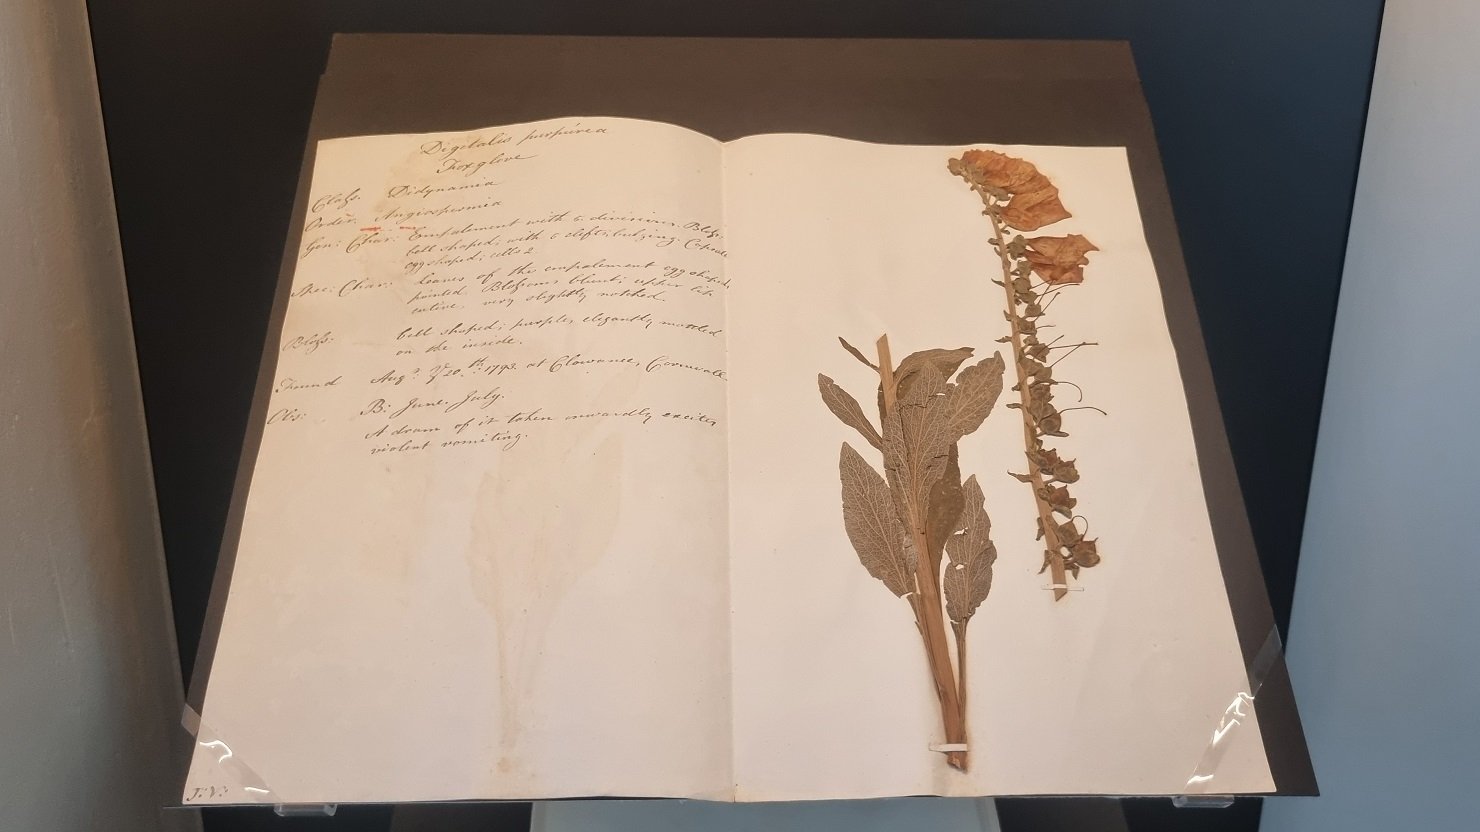 Digitalis purpúrea
Foxglove
Claſs. Didynamia
Order. Angiospermia
Gen: Char: Empalement with 5 divisions. Bloſs:
bell shaped; with 5 clefts; bulging. Capsule
egg shaped; cells 2.
Spec: Char: leaves of the empalement egg shaped,
pointed. Blossoms blunt; upper lip
entire. very slightly notched.
Bloſs: bell shaped; purple, elegantly mottled
on the inside.
Found Augt. ye 20th. 1793. at Clowance, Cornwall.
Obs: B: June. July.
A dram of it taken inwardly excites
violent vomiting.
J: V: